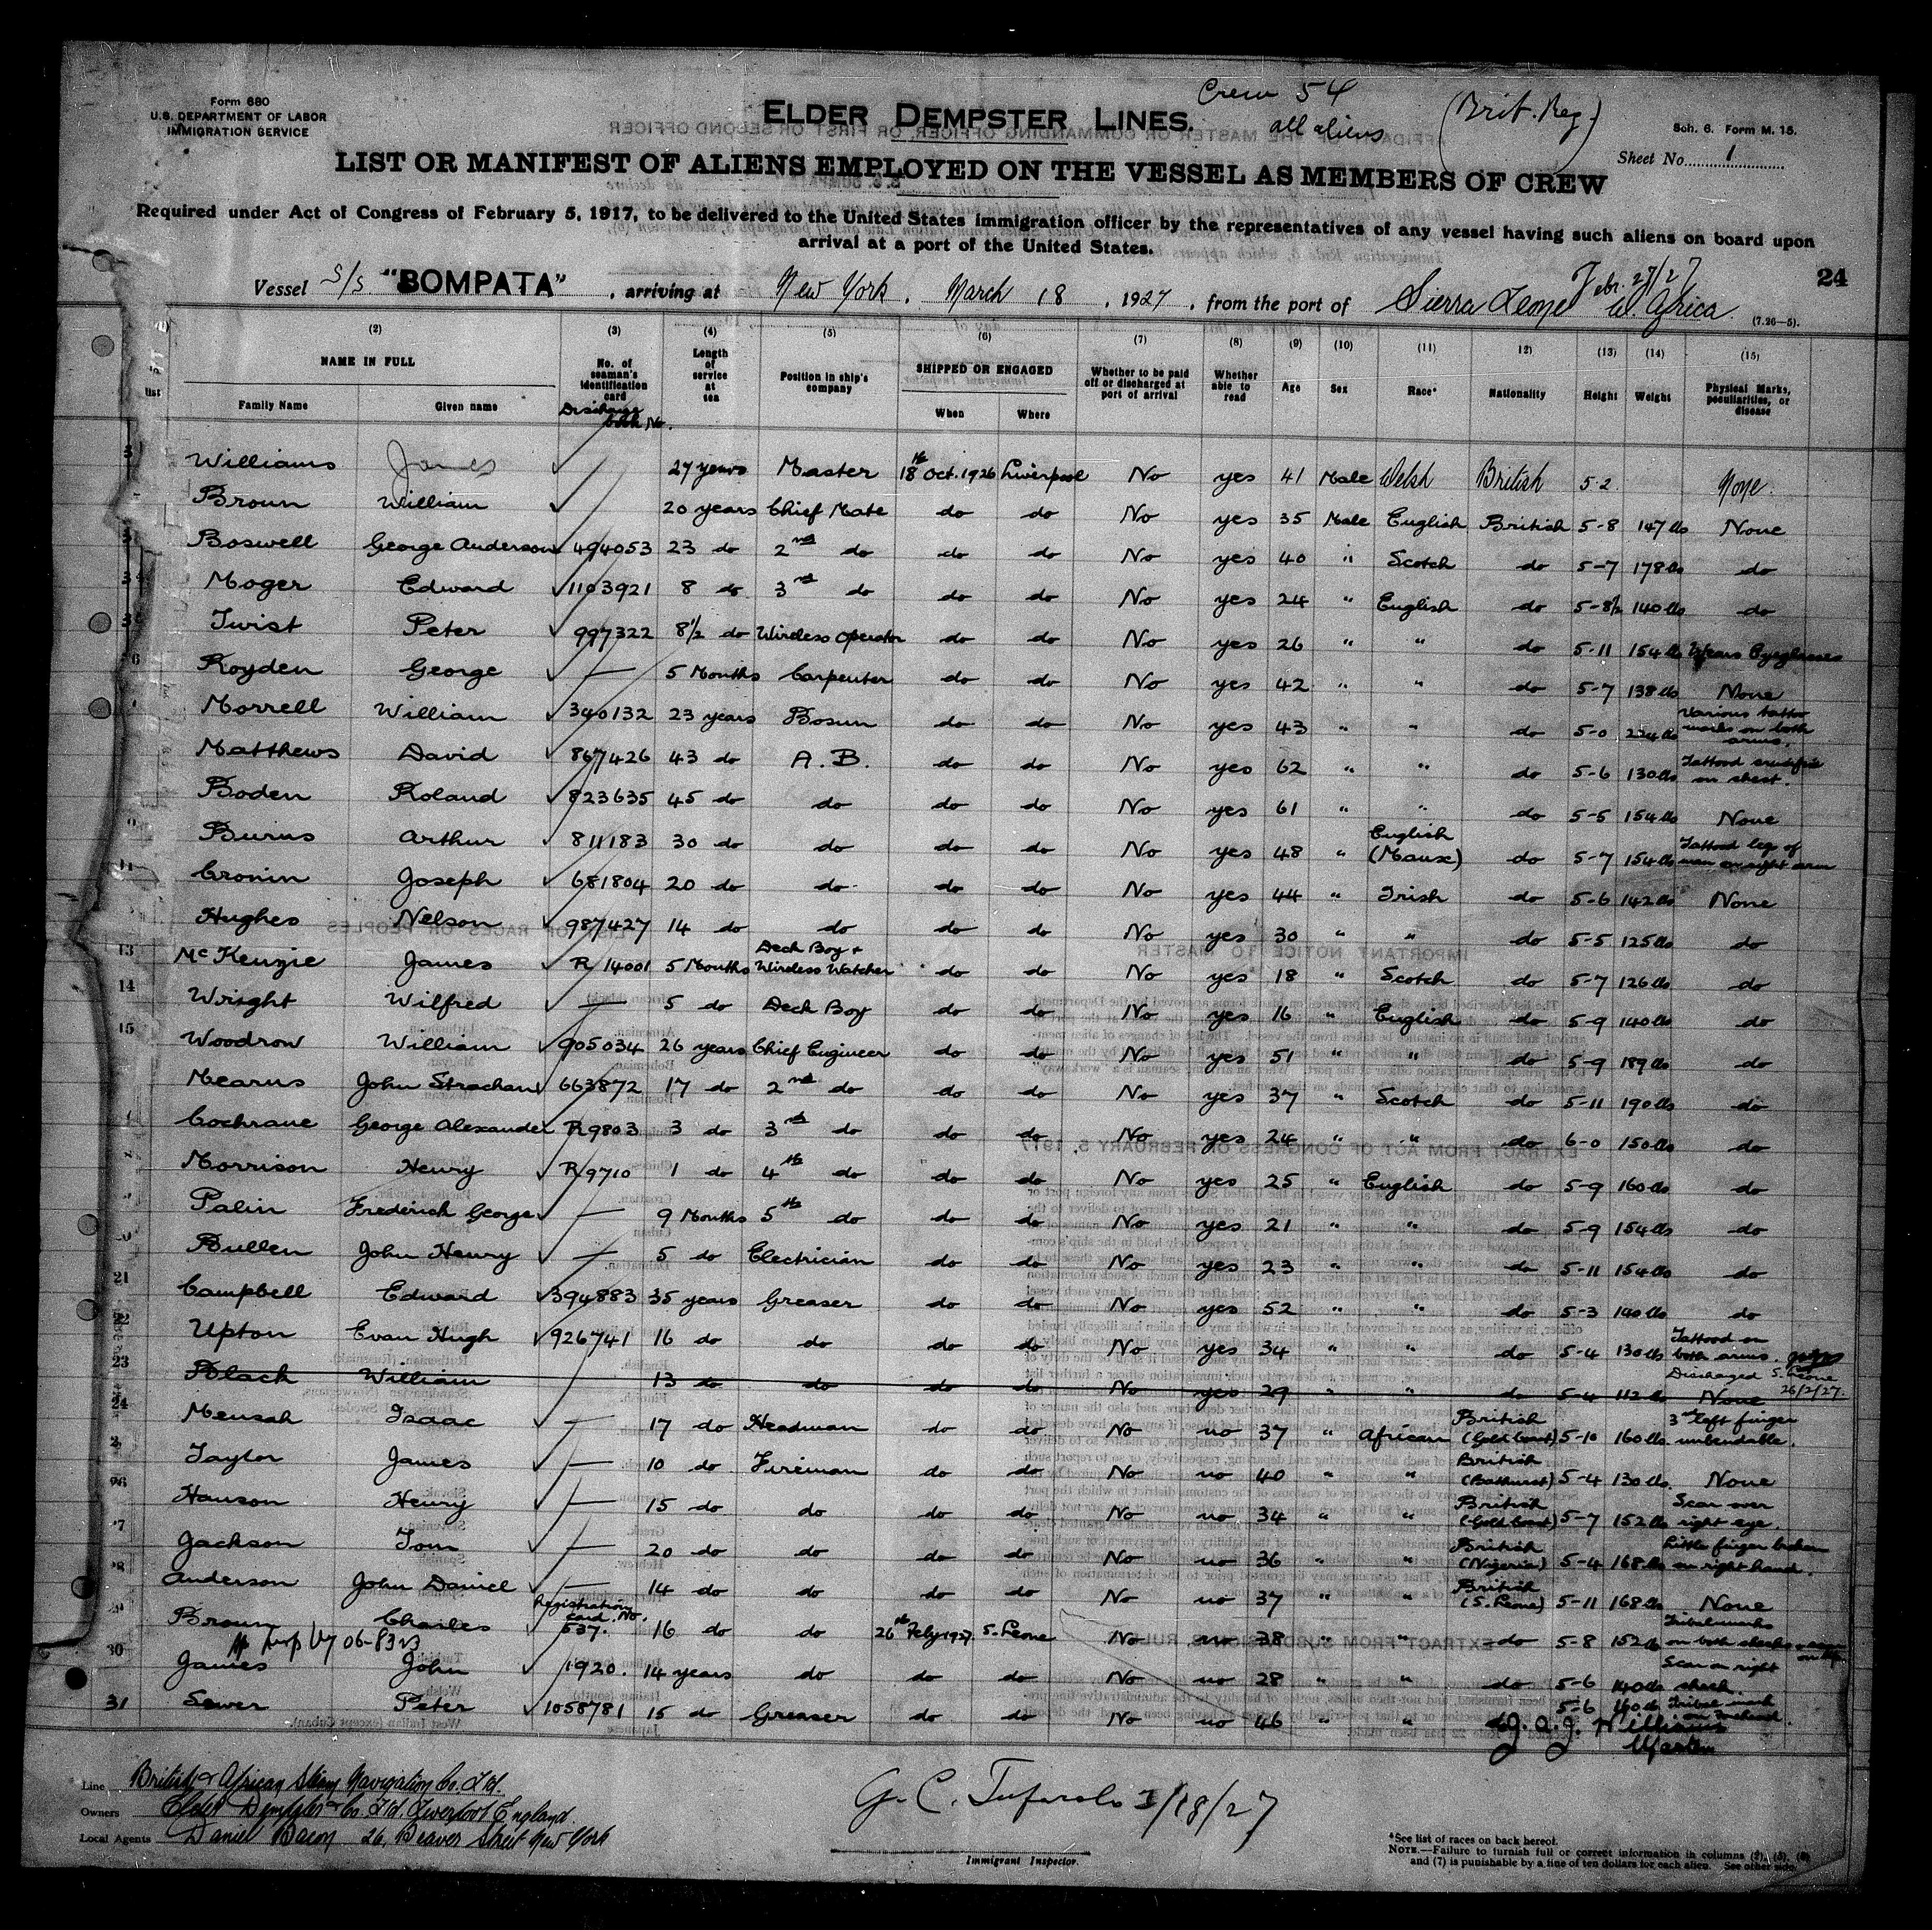 Form 680
U.S. DEPARTMENT OF LABOR
IMMIGRATION SERVICE
ELDER DEMPSTER LINES.
Crew 54
all aliens
(Brit. Reg.)
Sch. 6. Form M. 15.
Sheet No. 1
LIST OR MANIFEST OF ALIENS EMPLOYED ON THE VESSEL AS MEMBERS OF CREW
Required under Act of Congress of February 5, 1917, to be delivered to the United States immigration officer by the representatives of any vessel having such aliens on board upon
arrival at a port of the United States.
Febr. 27/27
24
Vessel S/S. "BOMPATA", arriving at New York, March 18, 1927, from the port of Sierra Leone W. Africa.
(7.26—5).
(2) (3) (4) (5) (6) (7) (8) (9) (10) (11) (12) (13) (14) (15)
NAME IN FULL No. of seaman's identification card Length of service at sea Position in ship's company SHIPPED OR ENGAGED Whether to be paid off or discharged at port of arrival Whether able to read Age Sex Race* Nationality Height Weight Physical Marks, peculiarities, or disease
list Family Name Given name Discharge book No. When Where
Williams James 27 years Master 18th Oct. 1926 Liverpool No yes 41 Male Welsh British 5-2 None.
Broun William 20 years Chief Mate do do No yes 35 Male English British 5-8 147 lbs None
Boswell George Anderson 494053 23 do 2nd do do do No yes 40 " Scotch do 5-7 178 lbs do
Moger Edward 1103921 8 do 3rd do do do No yes 24 " English do 5-8½ 140 lbs do
Twist Peter 997322 8½ do Wireless Operator do do No yes 26 " " do 5-11 154 lbs Wears Eyeglasses
6 Royden George — 5 Months Carpenter do do No yes 42 " " do 5-7 138 lbs None
Morrell William 340132 23 years Bosun do do No yes 43 " " do 5-0 224 lbs Various tattoo marks on both arms.
Matthews David 867426 43 do A.B. do do No yes 62 " " do 5-6 130 lbs Tattood crucifix on chest.
Boden Roland 823635 45 do do do do No yes 61 " " do 5-5 154 lbs None
Burns Arthur 811183 30 do do do do No yes 48 " English (Manx) do 5-7 154 lbs Tattood leg of man on right arm
11 Cronin Joseph 681804 20 do do do do No yes 44 " Irish do 5-6 142 lbs None
Hughes Nelson 987427 14 do do do do No yes 30 " " do 5-5 125 lbs do
13 McKenzie James R 14001 5 Months Deck Boy + Wireless Watcher do do No yes 18 " Scotch do 5-7 126 lbs do
14 Wright Wilfred — 5 do Deck Boy do do No yes 16 " English do 5-9 140 lbs do
15 Woodrow William 905034 26 years Chief Engineer do do No yes 51 " " do 5-9 189 lbs do
Mearns John Strachan 663872 17 do 2nd do do do No yes 37 " Scotch do 5-11 190 lbs do
Cochrane George Alexander R 9803 3 do 3rd do do do No yes 24 " " do 6-0 150 lbs do
Morrison Henry R 9710 1 do 4th do do do No yes 25 " English do 5-9 160 lbs do
Palin Frederick George — 9 Months 5th do do do No yes 21 " " do 5-9 154 lbs do
Bullen John Henry — 5 do Electrician do do No yes 23 " " do 5-11 154 lbs do
21 Campbell Edward 394883 35 years Greaser do do No yes 52 " " do 5-3 140 lbs do
22 Upton Evan Hugh 926741 16 do do do do No yes 34 " " do 5-4 130 lbs Tattood on both arms.
23 Black William 13 do do do do No yes 29 " " do 5-4 112 lbs None Discharged S. Leone 26/2/27.
24 Mensah Isaac — 17 do Headman do do No no 37 " African British (Gold Coast) 5-10 160 lbs 3rd left finger unbendable.
Taylor James — 10 do Fireman do do No no 40 " " British (Bathurst) 5-4 130 lbs. None
26 Hanson Henry — 15 do do do do No no 34 " " British (Gold Coast) 5-7 152 lbs Scar over right eye.
Jackson Tom — 20 do do do do No no 36 " " British (Nigeria) 5-4 168 lbs Little finger broken on right hand.
Anderson John Daniel — 14 do do do do No no 37 " " British (S. Leone) 5-11 168 lbs None
Broun Charles Registration card. No. 537. 16 do do 26th Feby 1927. S. Leone No no 38 " " do 5-8 152 lbs Tribal marks on both cheeks
30 James John 1920. 14 years do do do No no 28 " " do 5-6 140 lbs Scar on right cheek.
31 Sawer Peter 1058781 15 do Greaser do do No no 46 " " do 5-6 140 lbs Tribal mark on forehead.
J. A. J. Williams
Master
Line British & African Steam Navigation Co. Ltd.
Owners Elder Dempster & Co. Ltd. Liverpool England
Local Agents Daniel Bacon 26, Beaver Street New York
G. C. Tufarolo 3/18/27
Immigrant Inspector.
*See list of races on back hereof.
NOTE.—Failure to furnish full or correct information in columns (2), (5), (6)
and (7) is punishable by a fine of ten dollars for each alien. See other side.